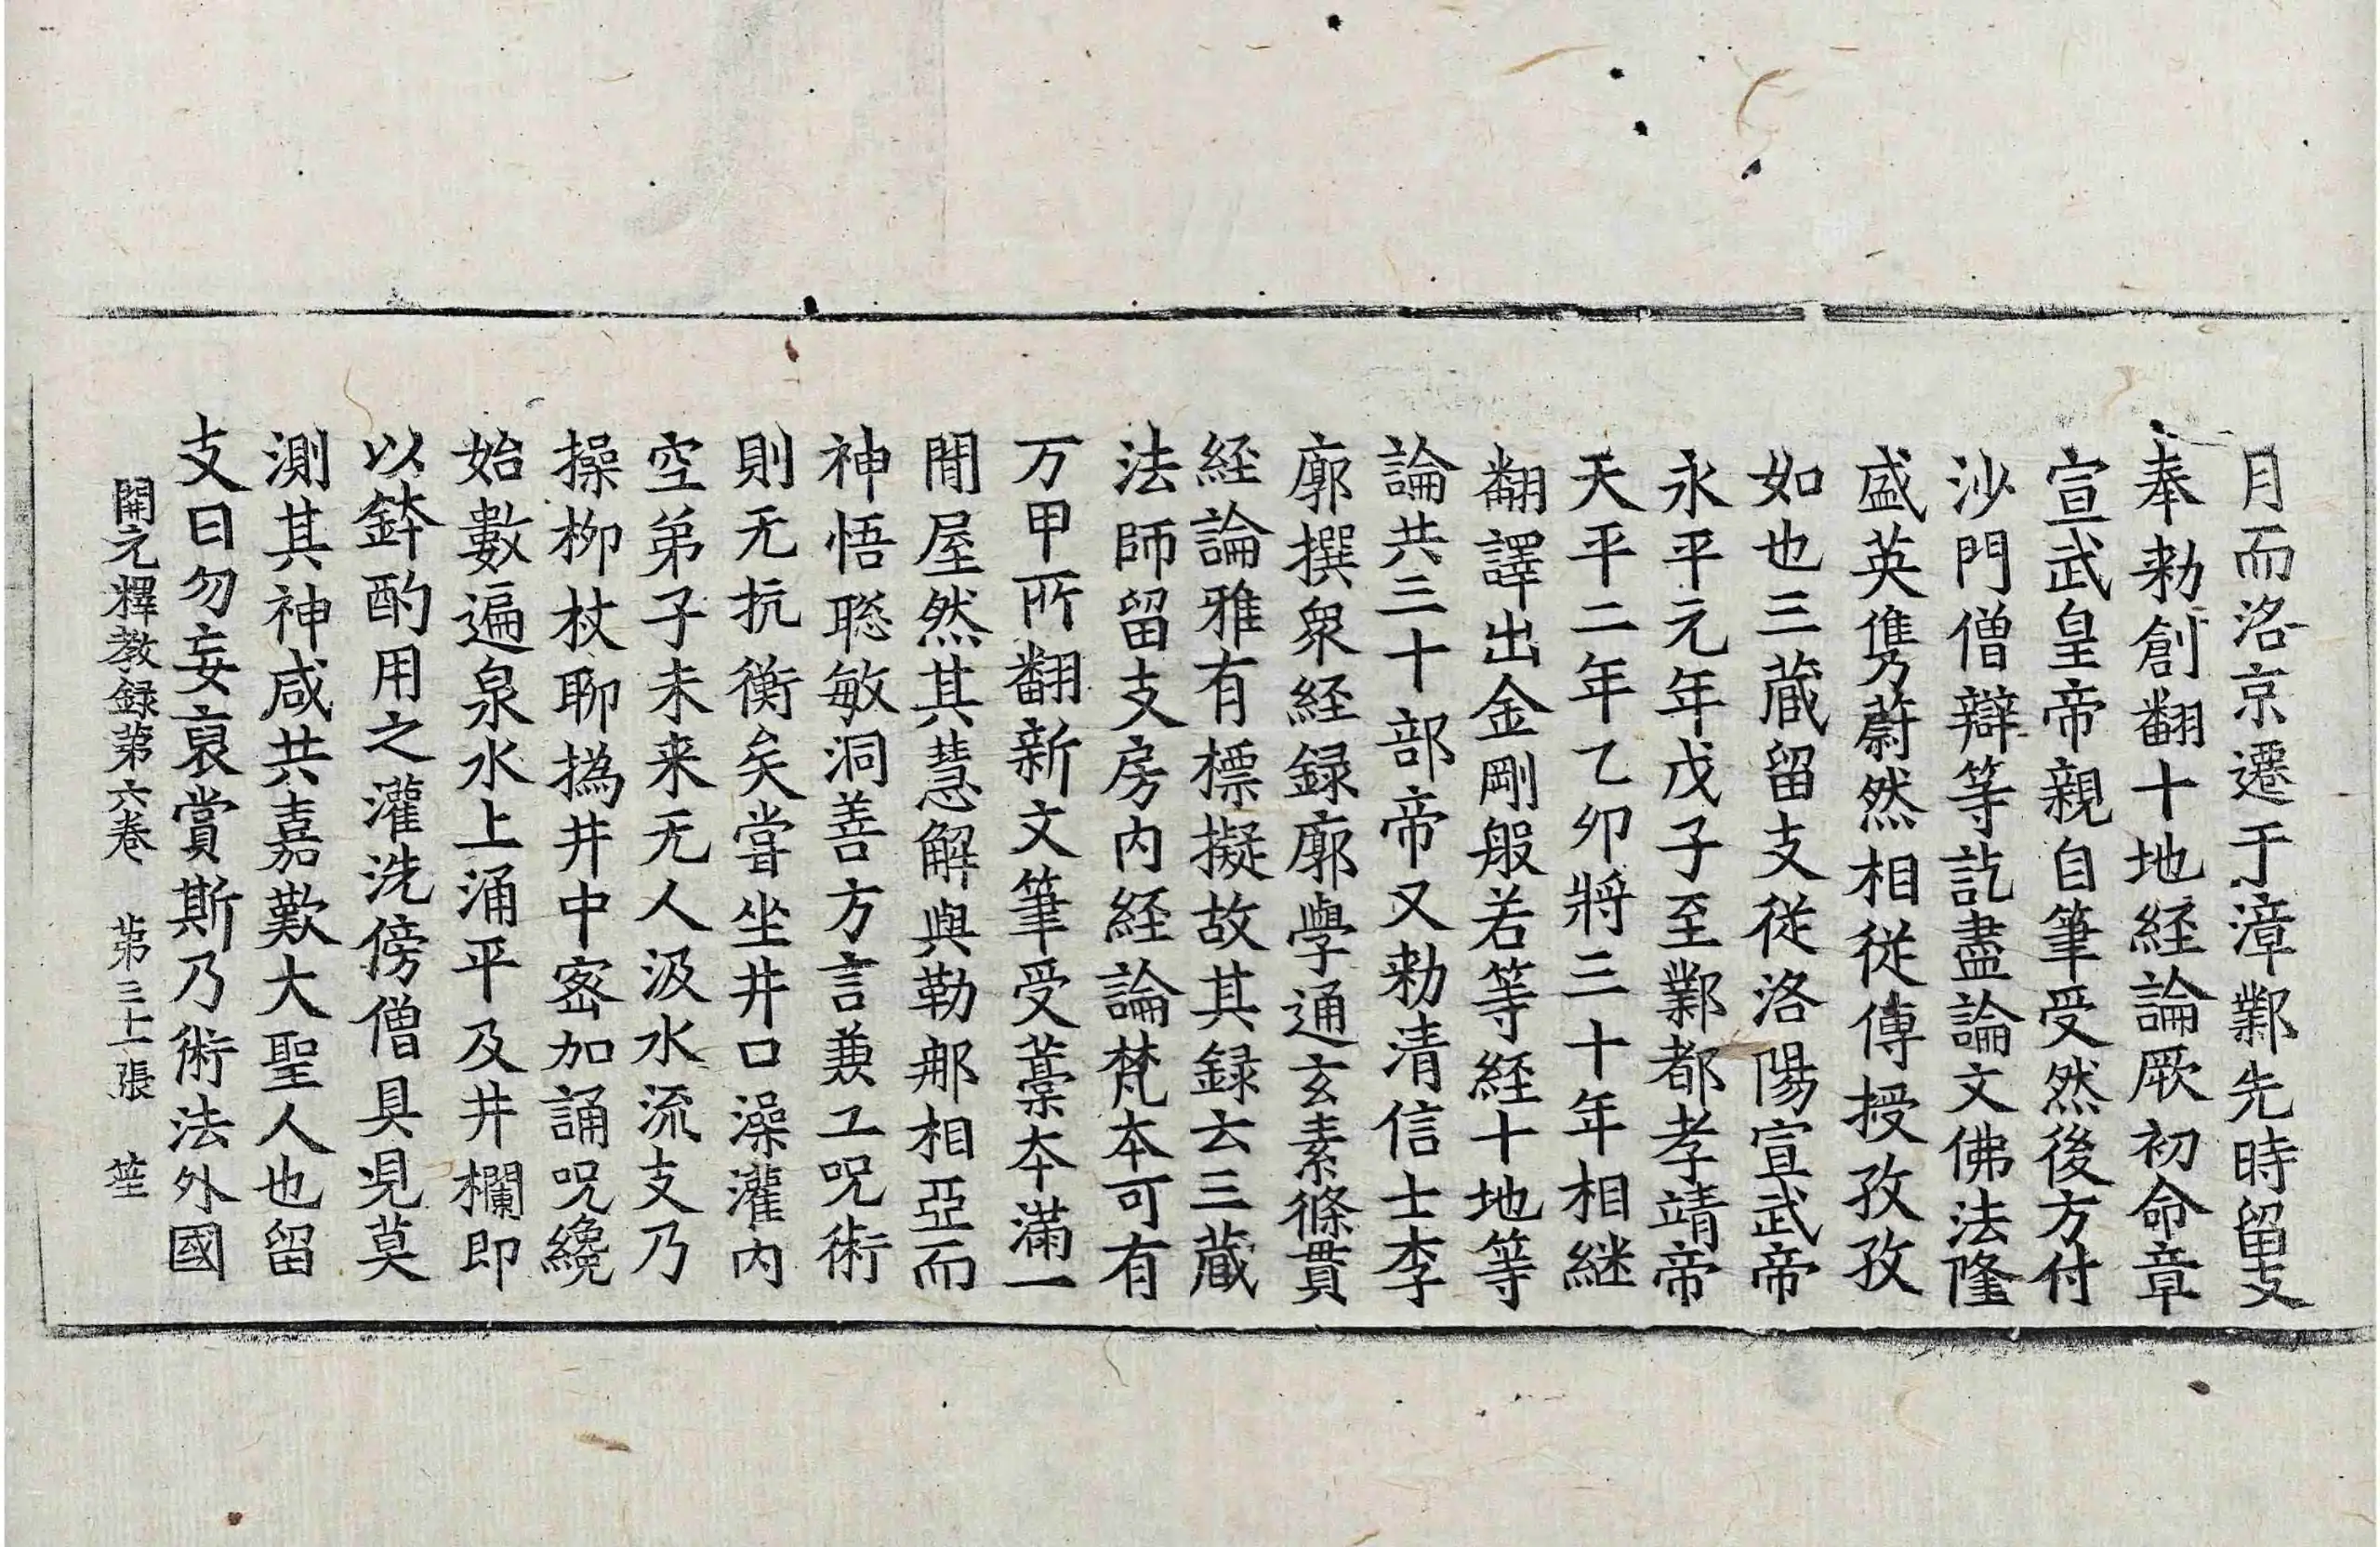 月而洛京遷于漳鄴先時留支
奉勑創翻十地経論厥初命章
宣武皇帝親自筆受然後方付
沙門僧辯等訖盡論文佛法隆
盛英儁蔚然相従傳授孜孜
如也三蔵留支従洛陽宣武帝
永平元年戊子至鄴都孝靖帝
天平二年乙卯將三十年相継
翻譯出金剛般若等経十地等
論共三十部帝又勑清信士李
廓撰衆経録廓學通玄素條貫
経論雅有標擬故其録云三蔵
法師留支房内経論梵本可有
万甲所翻新文筆受藁本滿一
閒屋然其慧解與勒那相亞而
神悟聡敏洞善方言兼工呪術
則无抗衡矣嘗坐井口澡灌内
空弟子未来无人汲水流支乃
操柳杖聊撝井中密加誦呪纔
始數遍泉水上涌平及井欄即
以鉢酌用之灌洗傍僧具見莫
測其神咸共嘉歎大聖人也留
支曰勿妄裒賞斯乃術法外國
開元釋教録第六巻　第三十張　笙